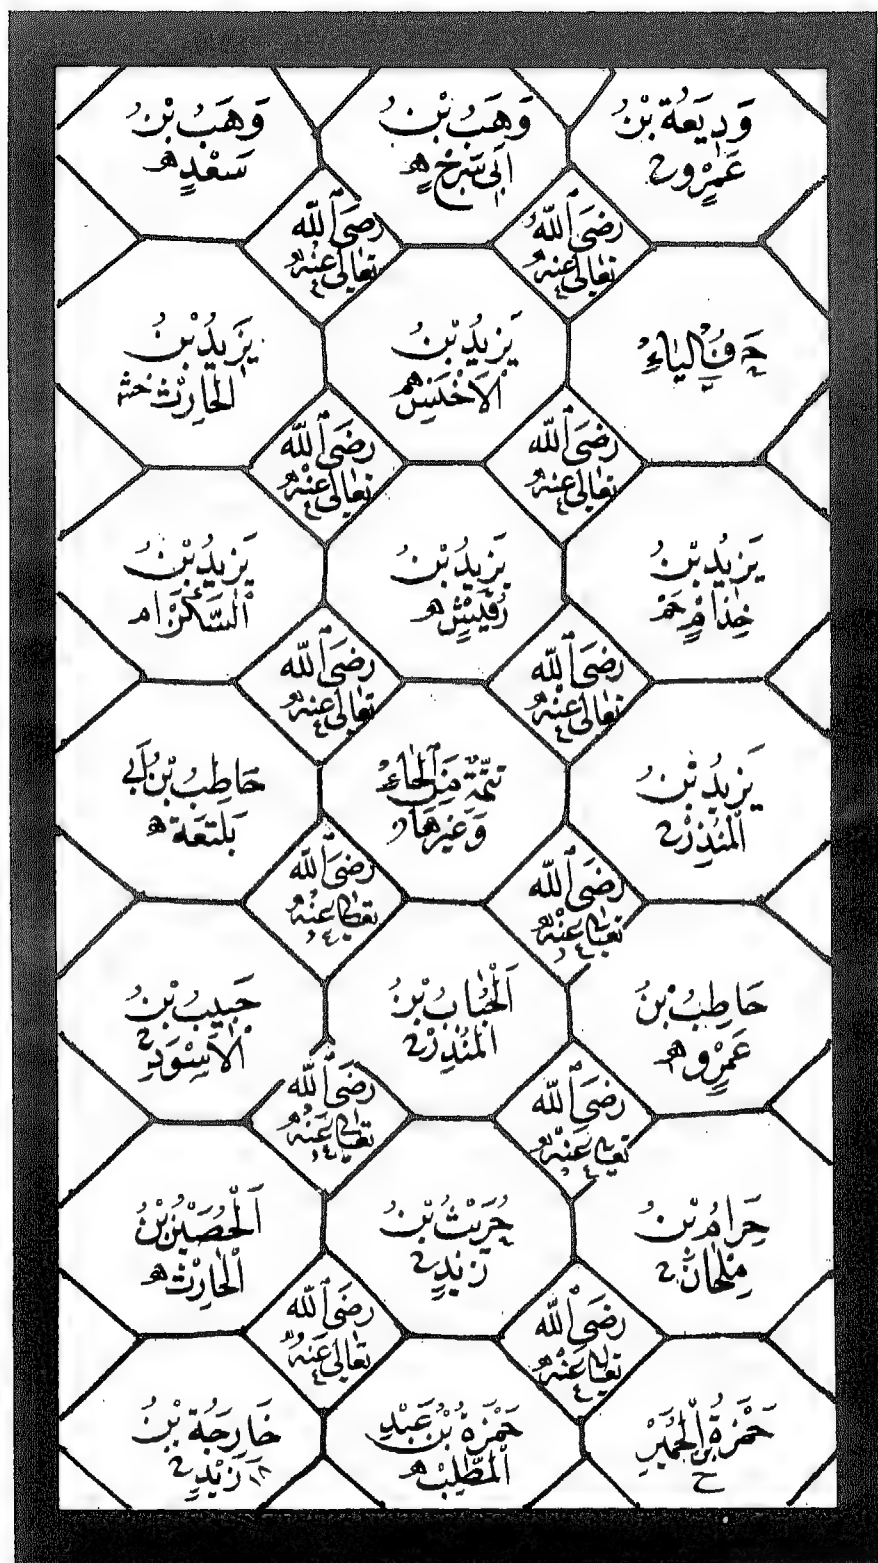 وَدِيعَةُ بْنُ
عَمْرٍو خ
وَهَبُ بْنُ
اَبِي سَرْحٍ ه
وَهَبُ بْنُ
سَعْدٍ ه
رَضِيَ اللّٰه
تَعَالٰى عَنْهُ
رَضِيَ اللّٰه
تَعَالٰى عَنْهُ
يَزِيدُ بْنُ
الْاَخْنَسِ
يَزِيدُ بْنُ
الْحَارِث
رَضِيَ اللّٰه
تَعَالٰى عَنْهُ
رَضِيَ اللّٰه
تَعَالٰى عَنْهُ
يَزِيدُ بْنُ
خِذَامٍ
يَزِيدُ بْنُ
رُقَيْشٍ ه
يَزِيدُ بْنُ
السَّكَنْ
رَضِيَ اللّٰه
تَعَالٰى عَنْهُ
رَضِيَ اللّٰه
تَعَالٰى عَنْهُ
يَزِيدُ بْنُ
الْمُنْذِرْ خ
تَتِمَّةٌ مِنَ الْحَاءِ
وَغَيْرِهَا
حَاطِبُ بْنُ اَبِي
بَلْتَعَة ه
رَضِيَ اللّٰه
تَعَالٰى عَنْهُ
رَضِيَ اللّٰه
تَعَالٰى عَنْهُ
حَاطِبُ بْنُ
عَمْرٍو ه
اَلْحُبَابُ بْنُ
الْمُنْذِرْ خ
حَبِيبُ بْنُ
الْاَسْوَدِ خ
رَضِيَ اللّٰه
تَعَالٰى عَنْهُ
رَضِيَ اللّٰه
تَعَالٰى عَنْهُ
حَرَامُ بْنُ
مِلْحَانَ خ
حُرَيْثُ بْنُ
زَيْدٍ خ
اَلْحُصَيْنُ بْنُ
الْحَارِث ه
رَضِيَ اللّٰه
تَعَالٰى عَنْهُ
رَضِيَ اللّٰه
تَعَالٰى عَنْهُ
حَمْزَةُ بْنُ الْحُمَيِّرْ
خ
حَمْزَةُ بْنُ عَبْدِ
الْمُطَّلِبْ ه
خَارِجَةُ بْنُ
زَيْدٍ خ ١٨